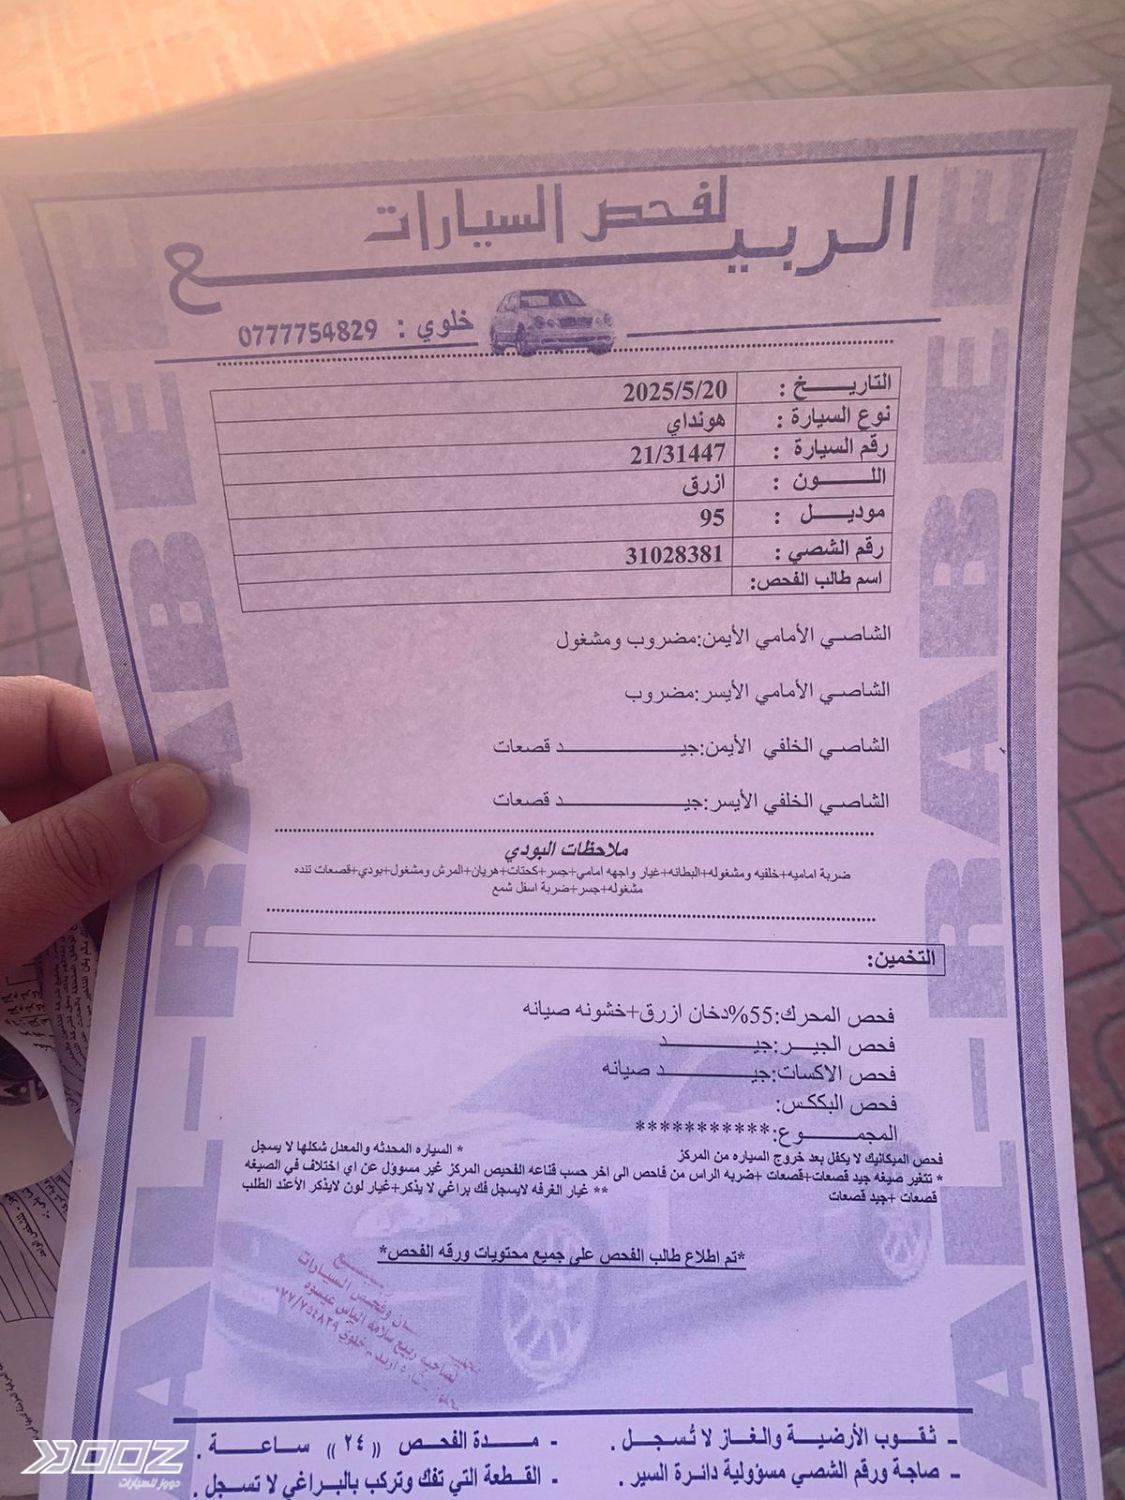 الربيع
لفحص السيارات
خلوي : 0777754829
التاريخ : 2025/5/20
نوع السيارة : هونداي
رقم السيارة : 21/31447
اللون : ازرق
موديل : 95
رقم الشصي : 31028381
اسم طالب الفحص:
الشاصي الأمامي الأيمن:مضروب ومشغول
الشاصي الأمامي الأيسر:مضروب
الشاصي الخلفي الأيمن:جيد قصعات
الشاصي الخلفي الأيسر:جيد قصعات
ملاحظات البودي
ضربة اماميه+خلفيه ومشغوله+البطانه+غيار واجهه امامي+جسر+كحتات+هريان+المرش ومشغول+بودي+قصعات تنده
مشغوله+جسر+ضربة اسفل شمع
التخمين:
فحص المحرك:55%دخان ازرق+خشونه صيانه
فحص الجير:جيد
فحص الاكسات:جيد صيانه
فحص البككس:
المجموع:***********
فحص الميكانيك لا يكفل بعد خروج السياره من المركز * السياره المحدثه والمعدل شكلها لا يسجل
* تتغير صيغه جيد قصعات+قصعات +ضربه الراس من فاحص الى اخر حسب قناعه الفحيص المركز غير مسوؤل عن اي اختلاف في الصيغه
قصعات +جيد قصعات ** غيار الغرفه لايسجل فك براغي لا يذكر+غيار لون لايذكر الأعند الطلب
*تم اطلاع طالب الفحص على جميع محتويات ورقه الفحص*
- ثقوب الأرضية والغاز لا تُسجل . - مدة الفحص (( ٢٤ )) ساعة .
- صاجة ورقم الشصي مسؤولية دائرة السير . - القطعة التي تفك وتركب بالبراغي لا تسجل .
AL-RABEE
AL-RABEE
DOOZ
دووز للسيارات